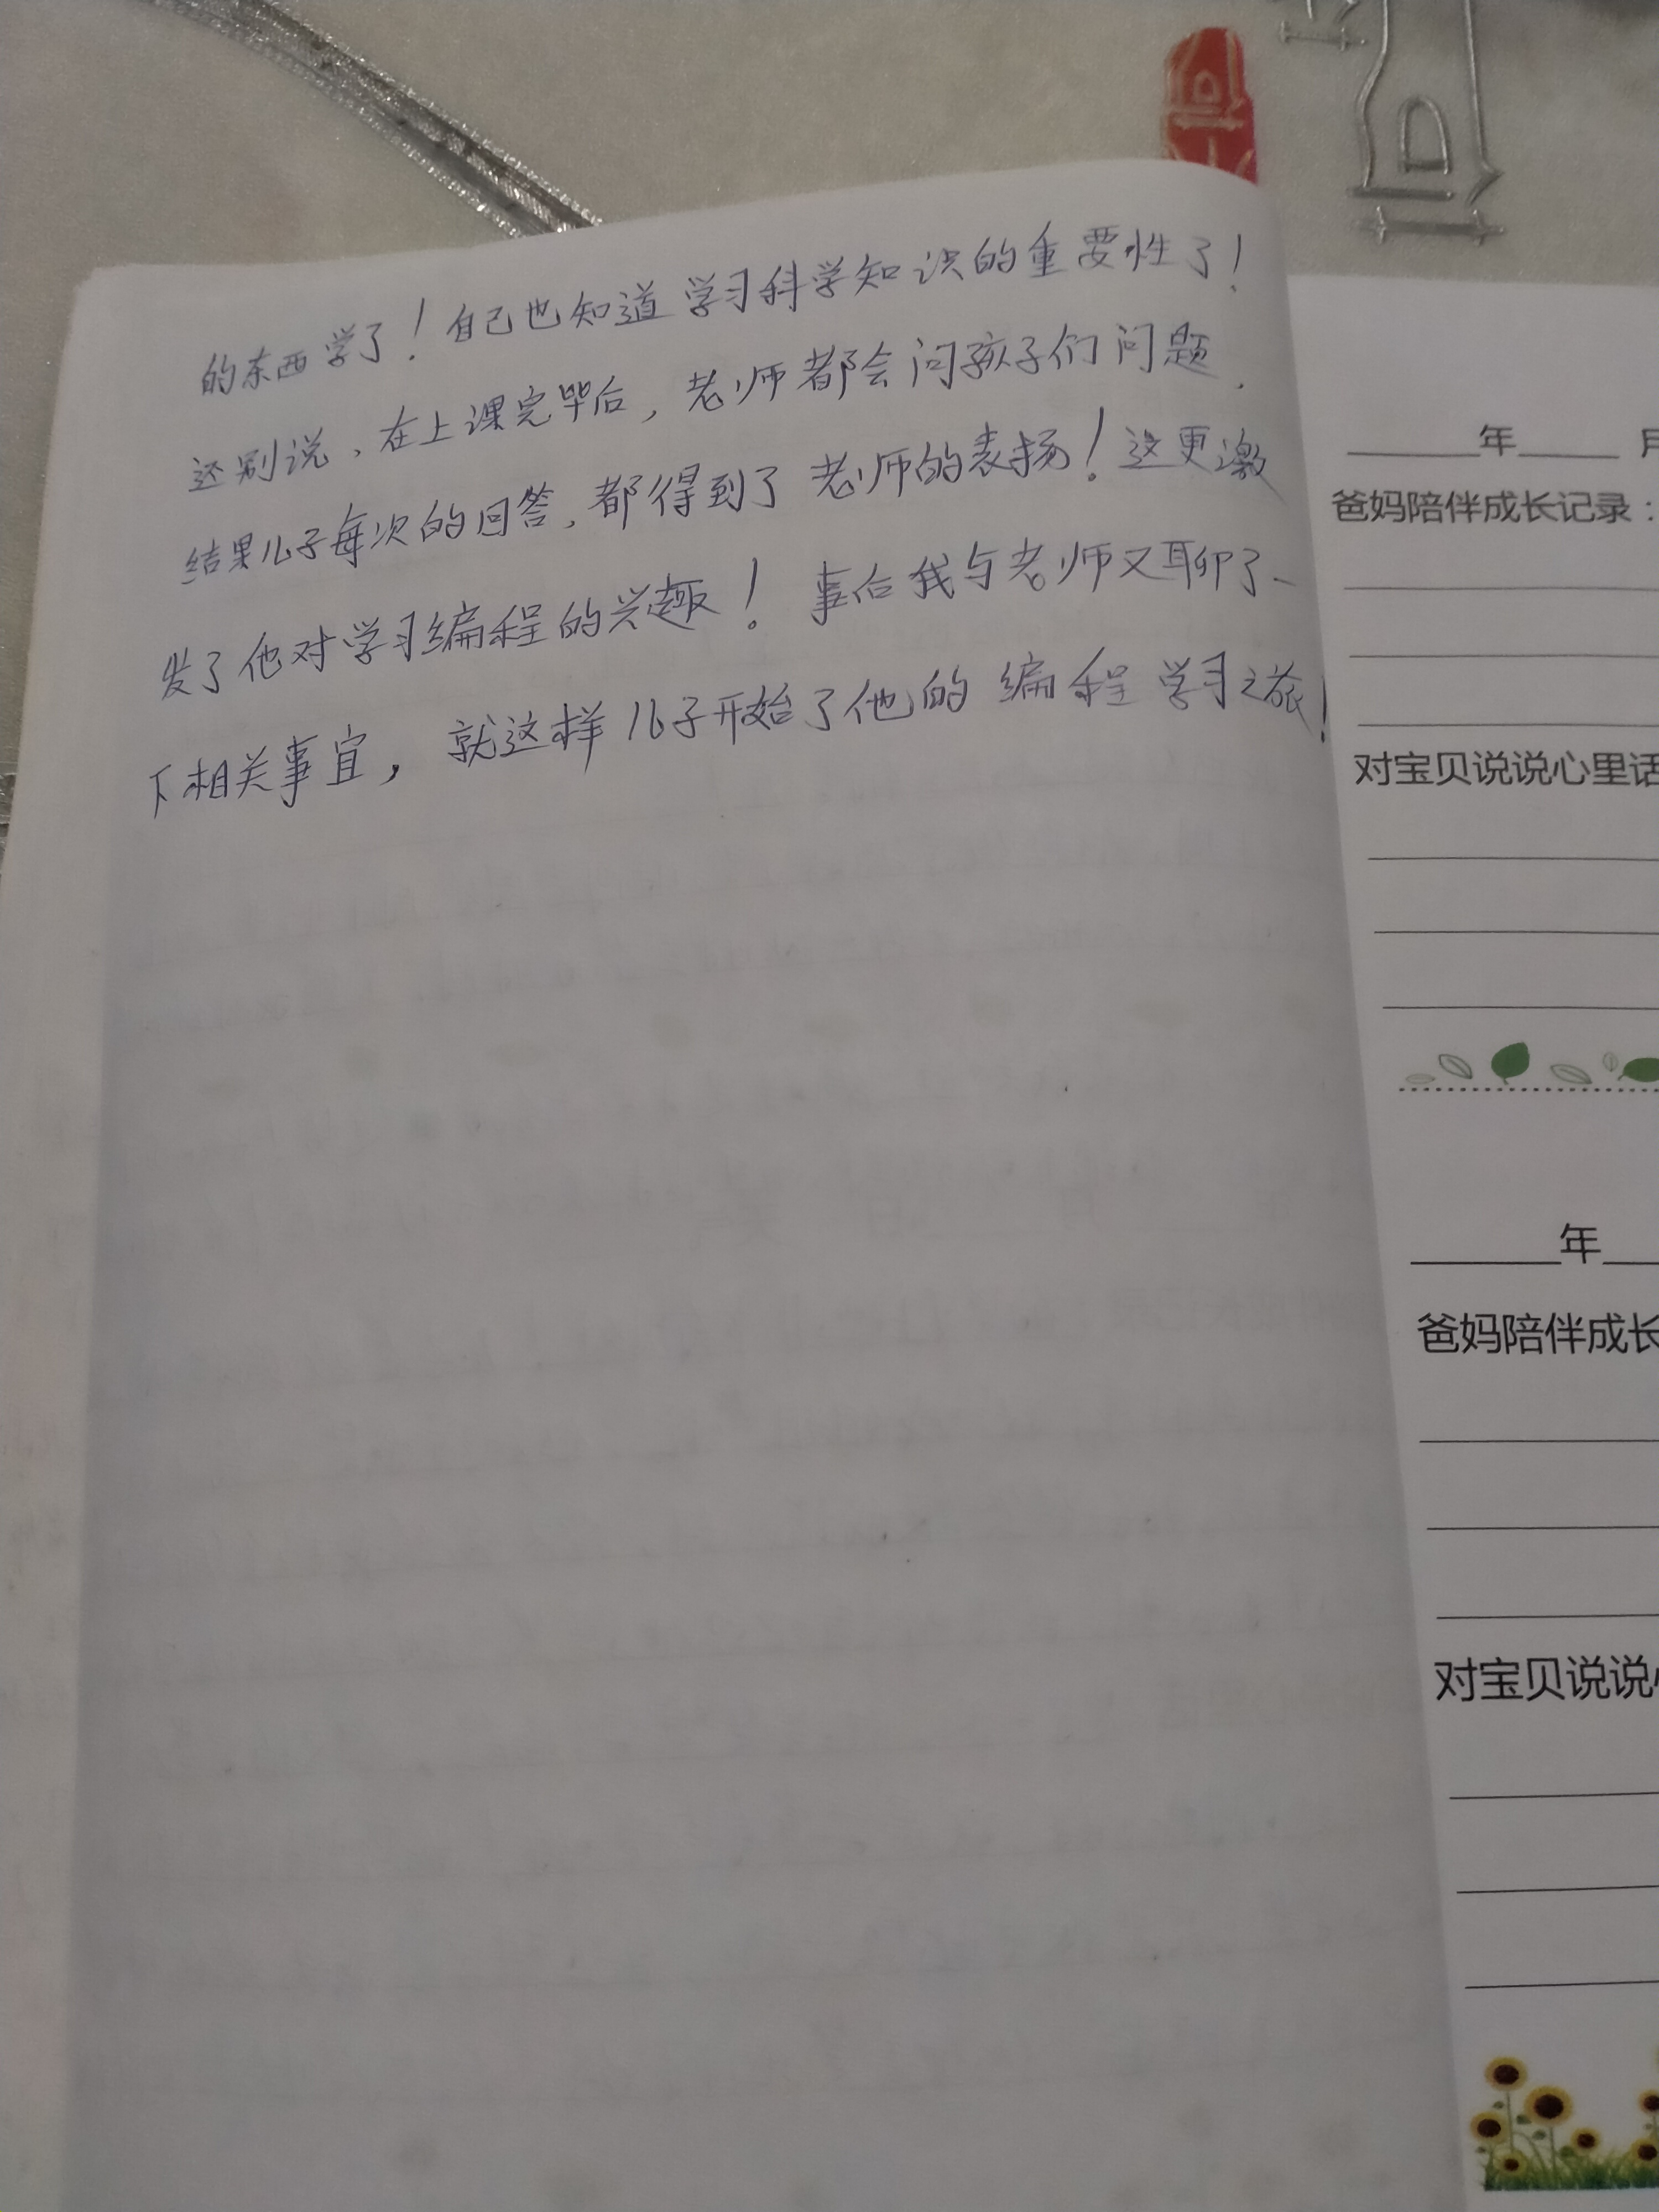 的东西学了！自己也知道学习科学知识的重要性了！
还别说、在上课完毕后，老师都会问孩子们问题、
结果儿子每次的回答、都得到了老师的表扬！这更激
发了他对学习编程的兴趣！事后我与老师又聊了一
下相关事宜，就这样儿子开始了他的编程学习之旅！
年 月
爸妈陪伴成长记录：
对宝贝说说心里话
年
爸妈陪伴成长
对宝贝说说